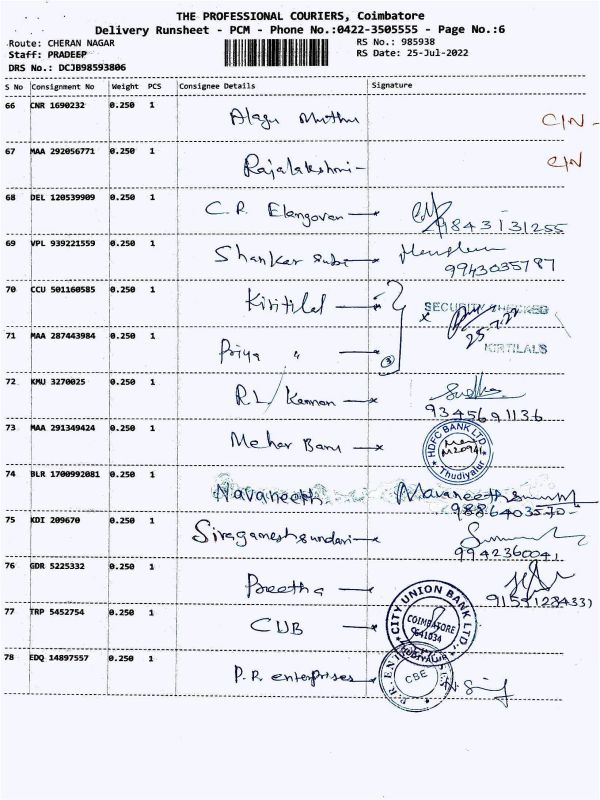 THE PROFESSIONAL COURIERS, Coimbatore
Delivery Runsheet - PCM - Phone No.:0422-3505555 - Page No.:6
Route: CHERAN NAGAR
RS No.: 985938
Staff: PRADEEP
RS Date: 25-Jul-2022
DRS No.: DCJB98593806
S No Consignment No Weight PCS Consignee Details Signature
66 CNR 1690232 0.250 1 Alagu Muthu C/N -
67 MAA 292056771 0.250 1 Rajalakshmi - C/N
68 DEL 120539909 0.250 1 C.R. Elangovan
9843131255
69 VPL 939221559 0.250 1 Shankar
9943035787
70 CCU 501160585 0.250 1 Kiritilal SECURITY CHECKED
25.7.22
71 MAA 287443984 0.250 1 Priya " 3 KIRTILALS
72 KMU 3270025 0.250 1 R.L/ Kannan Sudha
9345691136
73 MAA 291349424 0.250 1 Mehar Banu HDFC BANK LTD
Thudiyalur
74 BLR 1700992081 0.250 1 Navaneeth
9886403570
75 KDI 209670 0.250 1 Sivaganesh sundari
9942360041
76 GDR 5225332 0.250 1 Preetha
77 TRP 5452754 0.250 1 CUB CITY UNION BANK LTD.
COIMBATORE
641034
THUDIYALUR
78 EDQ 14897557 0.250 1 P.R. enterprises CBE